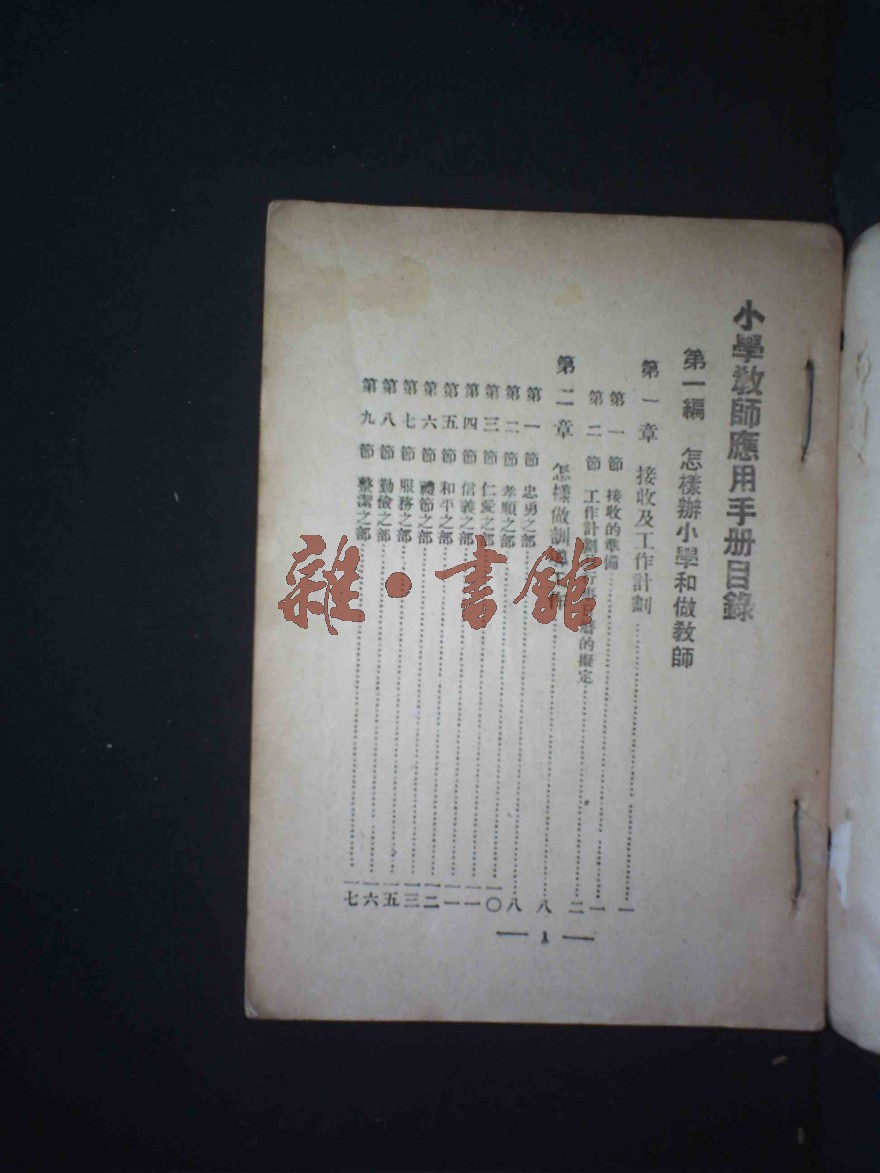 小學教師應用手册目錄
第一編 怎樣辦小學和做教師
第一章 接收及工作計劃……一
第一節 接收的準備……一
第二節 工作計劃 行事曆的擬定……二
第二章 怎樣做訓導工作……八
第一節 忠勇之部……八
第二節 孝順之部……一〇
第三節 仁愛之部……一一
第四節 信義之部……一一
第五節 和平之部……一二
第六節 禮節之部……一三
第七節 服務之部……一五
第八節 勤儉之部……一六
第九節 整潔之部……一七
— 1 —
雜·書館